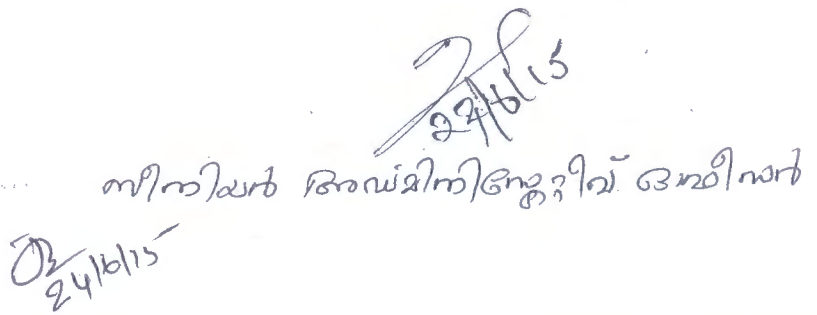 24/6/15
സീനിയർ അഡ്മിനിസ്ട്രേറ്റീവ് ഓഫീസർ
24/6/15